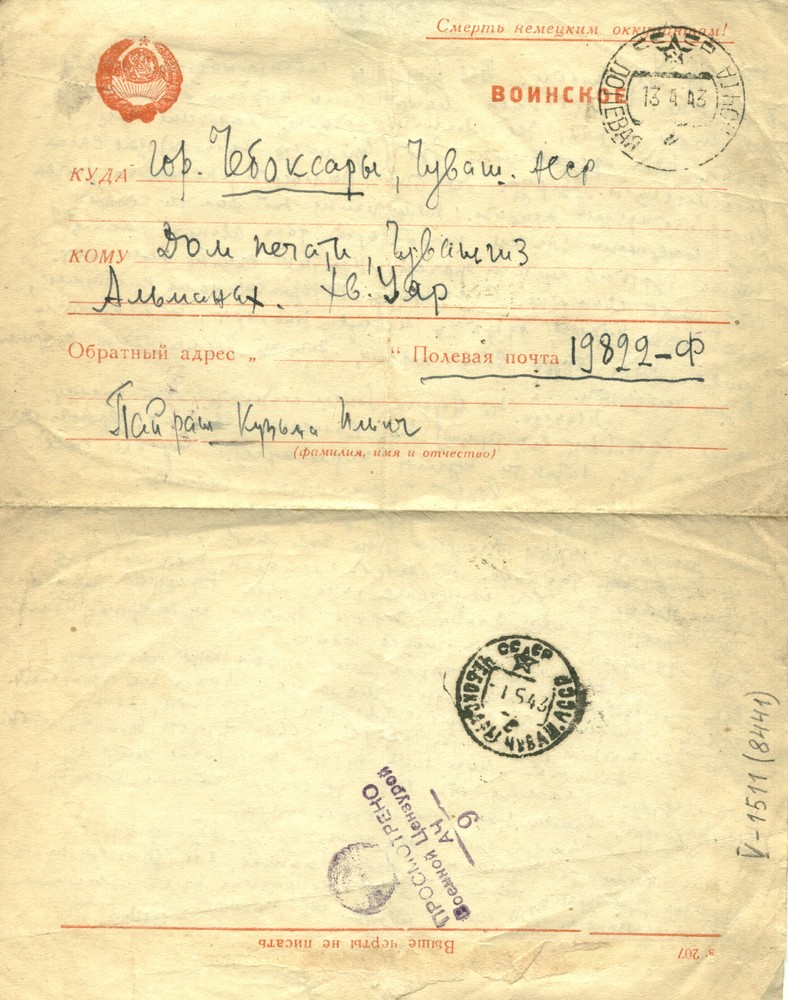 Смерть немецким оккупантам!
ВОИНСКОЕ
СССР
ПОЛЕВАЯ ПОЧТА
13 4 43
КУДА Гор. Чебоксары, Чуваш. АССР
КОМУ Дом печати, Чувашгиз
Альманах. Хв. Уяр
Обратный адрес „ “ Полевая почта 19822-Ф
Пайраш Кузьма Ильич
(фамилия, имя и отчество)
СССР
ЧЕБОКСАРЫ ЧУВАШ. АССР
-1 5 43
ПРОСМОТРЕНО
Военной Цензурой
АЧ
9
V-1511 (8441)
Выше черты не писать
з. 207